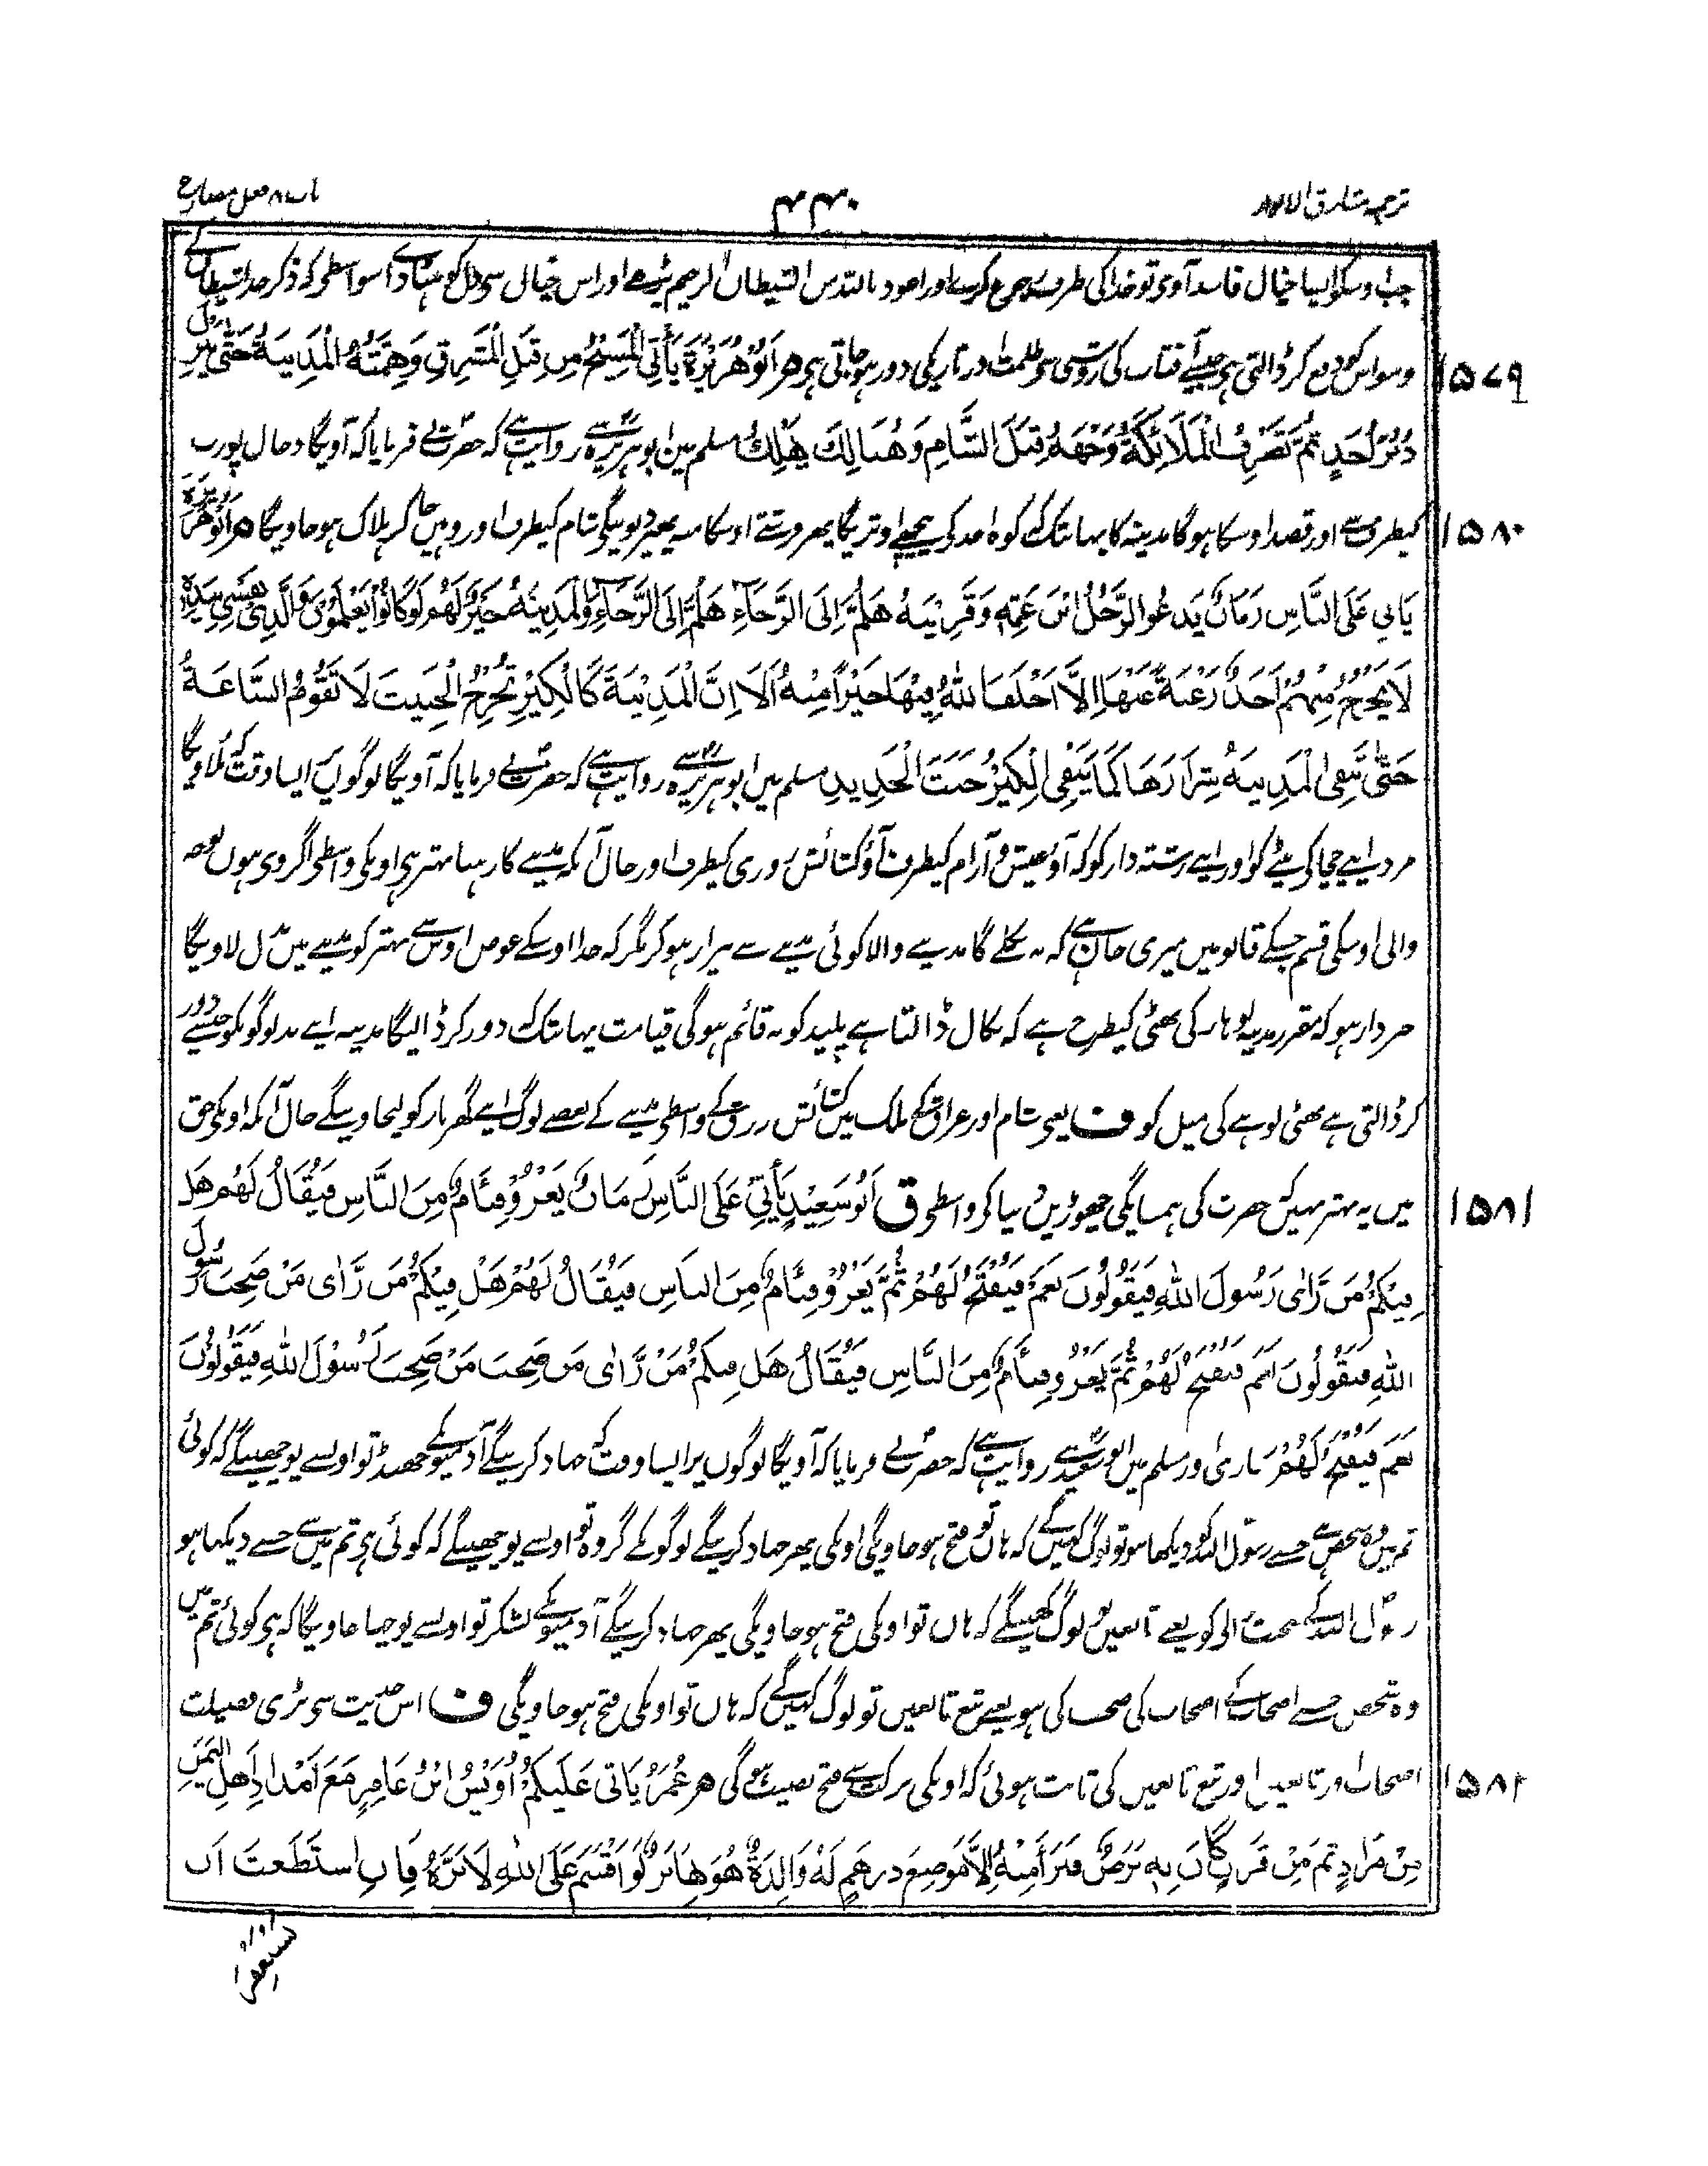 ترجمہ مشارق الانوار
۴۴۰
باب ۸ فصل مضارع
جب اوسکو ایسا خیال فاسد آوی تو خدا کی طرف رجوع کرے اور اعوذ باللہ من الشیطان الرجیم پڑھے اور اس خیال سی دل کو ہٹادے اسواسطی کہ ذکر خدا شیطان کے
۱۵۷۹
وسواس کو دفع کر ڈالتی ہی جیسے آفتاب کی روشنی سی ظلمت اور تاریکی دور ہو جاتی ہی م اَبُوْ هُرَيْرَةَ يَأْتِي الْمَسِيْحُ مِنْ قِبَلِ الْمَشْرِقِ وَهِمَّتُهُ الْمَدِيْنَةُ حَتّٰى يَنْزِلَ
دُبُرَ اُحُدٍ ثُمَّ تَصْرِفُ الْمَلَائِكَةُ وَجْهَهُ قِبَلَ الشَّامِ وَهُنَالِكَ يَهْلِكُ مسلم مین ابو ہریرہ سے روایت ہے کہ حضرت نے فرمایا کہ آویگا دجال پورب
۱۵۸۰
کیطرف سے اور قصد اوسکا ہوگا مدینہ کا یہانتک کہ کوہ احد کی پیچھے اوتریگا پھر فرشتے اوسکا منہ پھیر دیوینگی شام کیطرف اور وہیں جا کر ہلاک ہو جاویگا م اَبُوْ هُرَيْرَةَ
يَأْتِي عَلَى النَّاسِ زَمَانٌ يَدْعُو الرَّجُلُ ابْنَ عَمِّهٖ وَقَرِيْبَهُ هَلُمَّ اِلَى الرَّخَاءِ هَلُمَّ اِلَى الرَّخَاءِ وَالْمَدِيْنَةُ خَيْرٌ لَهُمْ لَوْ كَانُوْا يَعْلَمُوْنَ وَالَّذِيْ نَفْسِيْ بِيَدِهٖ
لَا يَخْرُجُ مِنْهُمْ اَحَدٌ رَغْبَةً عَنْهَا اِلَّا اَخْلَفَ اللّٰهُ فِيْهَا خَيْرًا مِنْهُ اَلَا اِنَّ الْمَدِيْنَةَ كَالْكِيْرِ تُخْرِجُ الْخَبِيْثَ لَا تَقُوْمُ السَّاعَةُ
حَتّٰى تَنْفِيَ الْمَدِيْنَةُ شِرَارَهَا كَمَا يَنْفِي الْكِيْرُ خَبَثَ الْحَدِيْدِ مسلم میں ابو ہریرہ سے روایت ہے کہ حضرت نے فرمایا کہ آویگا لوگوں پر ایسا وقت کہ بُلاویگا
مرد اپنے چچا کی بیٹے کو اور اپنے رشتہ دار کو کہ آؤ عیش و آرام کیطرف آؤ کشائش روزی کیطرف اور حال آنکہ مدینے کا رہنا بہتر ہی اونکی واسطی اگر وی ہوں بوجھنے
والی اوسکی قسم جسکے قابو میں میری جان ہے کہ نہ نکلے گا مدینے والا کوئی مدینے سے بیزار ہو کر مگر کہ خدا اوسکے عوض اوس سے بہتر کو مدینے میں بدل لاویگا
خبردار ہو کہ مقرر مدینہ لوہار کی بھٹی کیطرح ہے کہ نکال ڈالتا ہے پلید کو نہ قائم ہوگی قیامت یہانتک کہ دور کر ڈالیگا مدینہ اپنے بدلوگونکو جیسے دور
کر ڈالتی ہے بھٹی لوہے کی میل کو ف یعنی شام اور عراق کے ملک میں کشائش رزق کے واسطی مدینے کے بعضے لوگ اپنے گھر بار کو لیجاوینگے حال آنکہ اونکی حق
۱۵۸۱
میں یہ بہتر نہیں کہ حضرت کی ہمسایگی چھوڑیں دنیا کی واسطی ق اَبُوْ سَعِيْدٍ يَأْتِيْ عَلَى النَّاسِ زَمَانٌ يَغْزُوْ فِئَامٌ مِنَ النَّاسِ فَيُقَالُ لَهُمْ هَلْ
فِيْكُمْ مَنْ رَّاٰى رَسُوْلَ اللّٰهِ فَيَقُوْلُوْنَ نَعَمْ فَيُفْتَحُ لَهُمْ ثُمَّ يَغْزُوْ فِئَامٌ مِنَ النَّاسِ فَيُقَالُ لَهُمْ هَلْ فِيْكُمْ مَنْ رَّاٰى مَنْ صَحِبَ رَسُوْلَ
اللّٰهِ فَيَقُوْلُوْنَ نَعَمْ فَيُفْتَحُ لَهُمْ ثُمَّ يَغْزُوْ فِئَامٌ مِنَ النَّاسِ فَيُقَالُ هَلْ فِيْكُمْ مَنْ رَّاٰى مَنْ صَحِبَ مَنْ صَحِبَ رَسُوْلَ اللّٰهِ فَيَقُوْلُوْنَ
نَعَمْ فَيُفْتَحُ لَهُمْ بخاری اور مسلم میں ابو سعید سے روایت ہے کہ حضرت نے فرمایا کہ آویگا لوگوں پر ایسا وقت کہ جہاد کرینگے آدمیونکے جھنڈ تو اونسے پوچھینگے کہ کوئی
تم میں وہ شخص ہے جسنے رسول اللہ کو دیکھا ہو تو لوگ کہیں گے کہ ہاں تو فتح ہو جاویگی اونکی پھر جہاد کرینگے لوگو نکے گروہ تو اونسے پوچھینگے کہ کوئی ہی تم میں سے جسنے دیکھا ہو
رسول اللہ کے صحبت والی کو یعنے تابعین لوگ کہینگے کہ ہاں تو اونکی فتح ہو جاویگی پھر جہاد کرینگے آدمیونکے لشکر تو اونسے پوچھا جاویگا کہ ہی کوئی تم میں
وہ شخص جسنے اصحاب کے اصحاب کی صحبت کی ہو یعنے تبع تابعیں تو لوگ کہینگے کہ ہاں تو اونکی فتح ہو جاویگی ف اس حدیث سی بڑی فضیلت
۱۵۸۲
اصحاب اور تابعین اور تبع تابعیں کی ثابت ہوئی کہ اونکی برکت سے فتح نصیب ہو گی م عُمَرُ يَأْتِيْ عَلَيْكُمْ اُوَيْسُ ابْنُ عَامِرٍ مَعَ اَمْدَادِ اَهْلِ الْيَمَنِ
مِنْ مُرَادٍ ثُمَّ مِنْ قَرَنٍ كَانَ بِهٖ بَرَصٌ فَبَرَأَ مِنْهُ اِلَّا مَوْضِعَ دِرْهَمٍ لَهُ وَالِدَةٌ هُوَ بِهَا بَرٌّ لَوْ اَقْسَمَ عَلَى اللّٰهِ لَاَبَرَّهُ فَاِنِ اسْتَطَعْتَ اَنْ